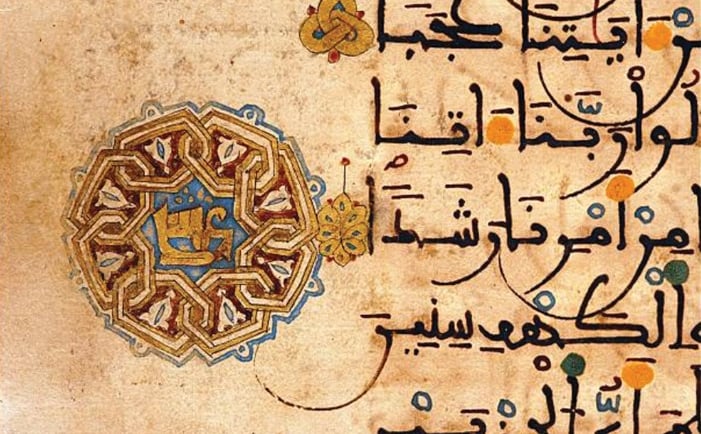 من ايتنا عجبا
لوا ربنا اتنا
من امرنا رشدا
الكهف سنين